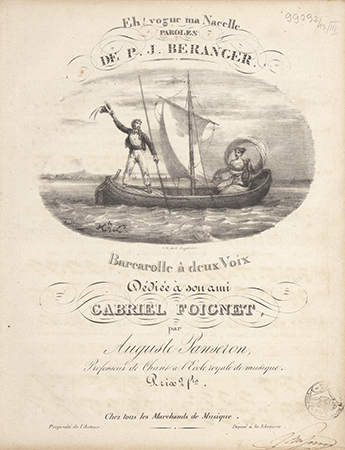 Eh! vogue ma Nacelle
PAROLES
DE P. J. BERANGER.
Barcarolle à deux Voix
Dédiée à son ami
GABRIEL FOIGNET,
par
Auguste Panseron,
Professeur de Chant à l'Ecole royale de musique.
Prix 2 fs.
Chez tous les Marchands de Musique.
Propriété de l'Auteur.
Déposé à la Direction